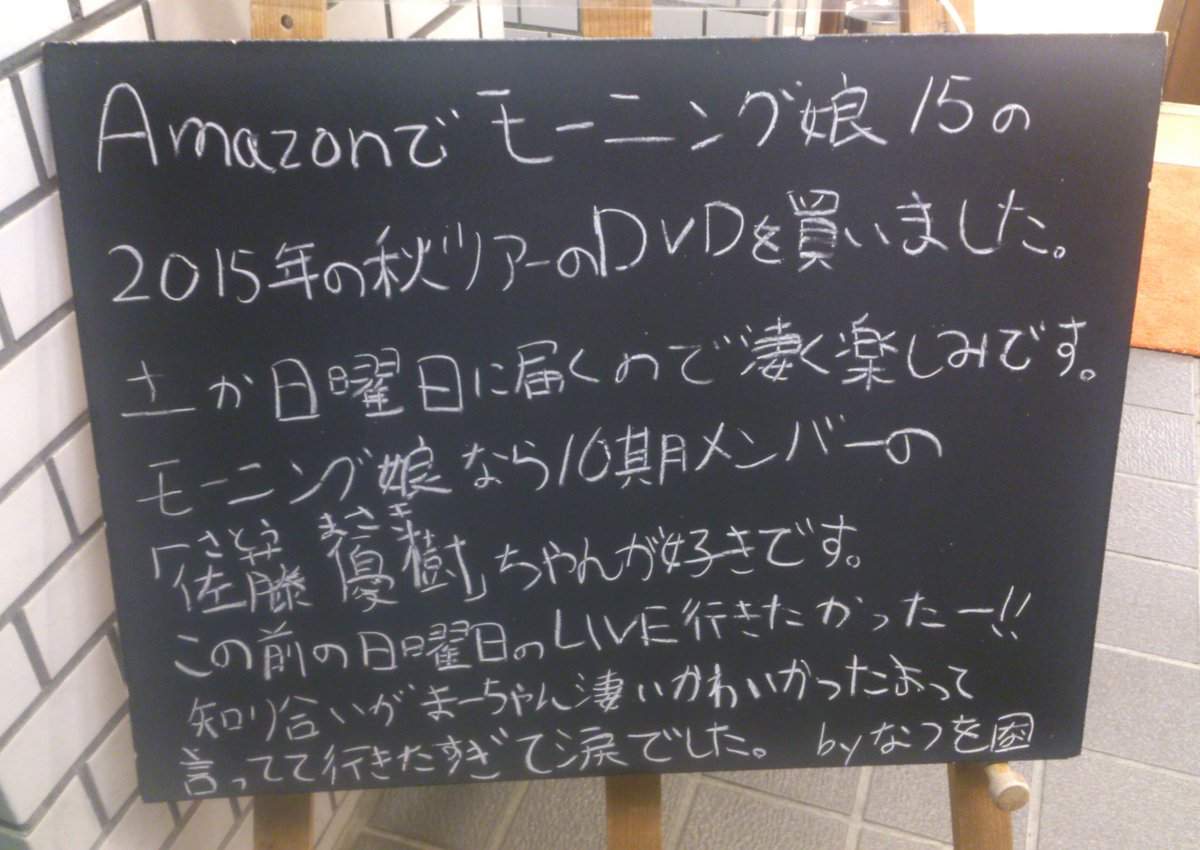 Amazonでモーニング娘15の
2015年の秋ツアーのDVDを買いました。
土か日曜日に届くので凄く楽しみです。
モーニング娘なら10期メンバーの
さとう まさき
「佐藤 優樹」ちゃんが好きです。
この前の日曜日のLIVE行きたかったー!!
知り合いがまーちゃん凄いかわいかったよって
言ってて行きたすぎて涙でした。 byなつを